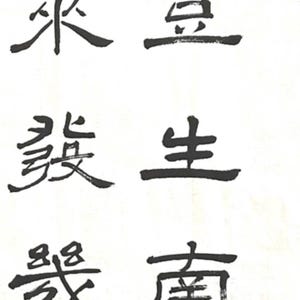 豆生南
來發幾